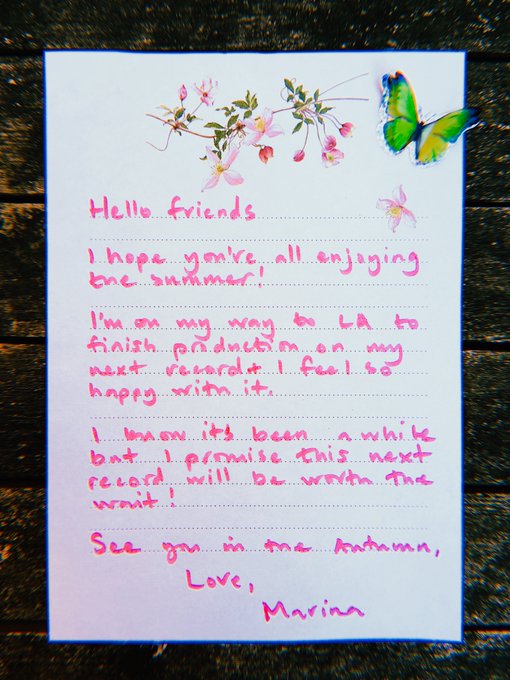 Hello friends
I hope you're all enjoying
the summer!
I'm on my way to LA to
finish production on my
next record + I feel so
happy with it.
I know its been a while
but I promise this next
record will be worth the
wait!
See you in the Autumn,
Love,
Marina